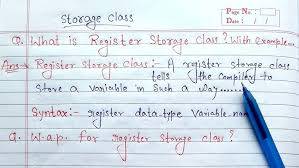 Storage class
Page No. :
Date : / /
Q. What is Register Storage Class? With Example...
Ans → Register Storage class:- A register storage class
tells the compiler to
store a variable in such a way........
Syntax:- register data-type Variable-name
Q. W.a.p. for register storage class?